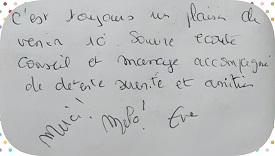 C'est toujours un plaisir de
venir ici. Sourire écoute
conseil et massage accompagné
de détente sérénité et amitiés
Merci! Mélo! Eve